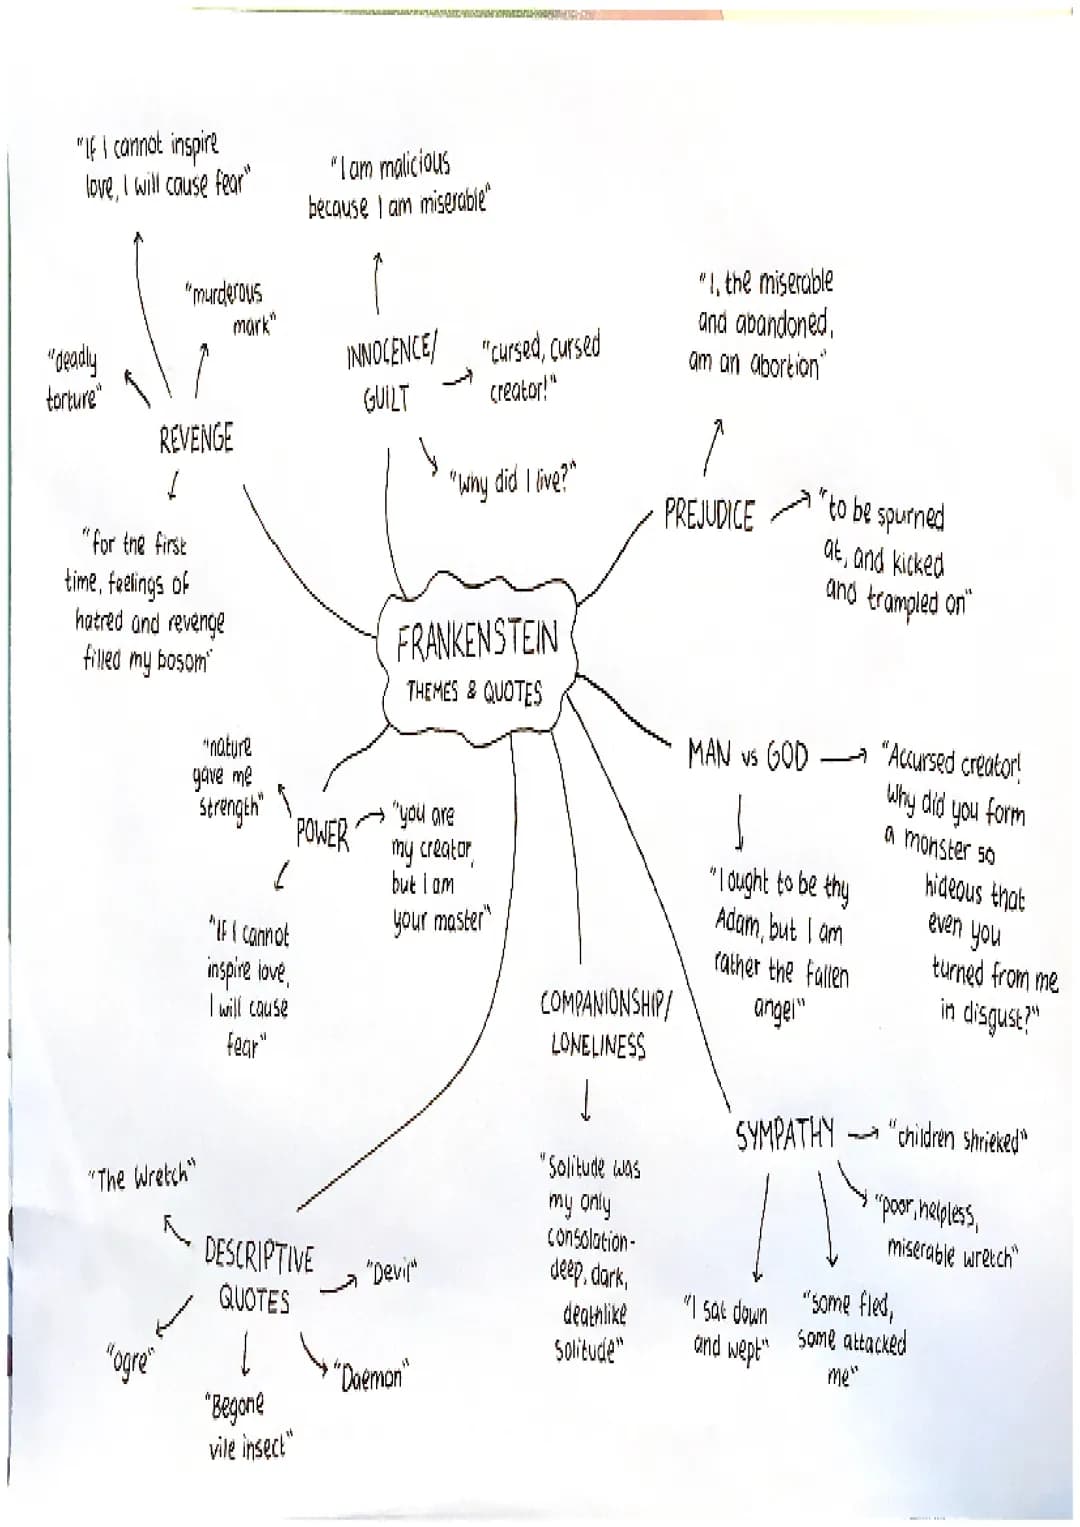 "If I cannot inspire
love, I will cause fear"
"murderous
mark"
"deadly
torture"
REVENGE
"for the first
time, feelings of
hatred and revenge
filled my bosom"
"I am malicious
because I am miserable"
INNOCENCE/
GUILT
"cursed, cursed
creator!"
"Why did I live?"
"I, the miserable
and abandoned,
am an abortion"
PREJUDICE
"to be spurned
at, and kicked
and trampled on"
FRANKENSTEIN
THEMES & QUOTES
"nature
gave me
strength"
POWER
"you are
my creator,
but I am
your master"
"If I cannot
inspire love,
I will cause
fear"
MAN vs GOD
"Accursed creator!
Why did you form
a monster so
hideous that
even you
turned from me
in disgust?"
"I ought to be thy
Adam, but I am
rather the fallen
angel"
COMPANIONSHIP/
LONELINESS
"Solitude was
my only
consolation-
deep, dark,
deathlike
solitude"
SYMPATHY
"children shrieked"
"poor, helpless,
miserable wretch"
"I sat down
and wept"
"some fled,
some attacked
me"
"The Wretch"
DESCRIPTIVE
QUOTES
"Devil"
"ogre"
"Begone
vile insect"
"Daemon"